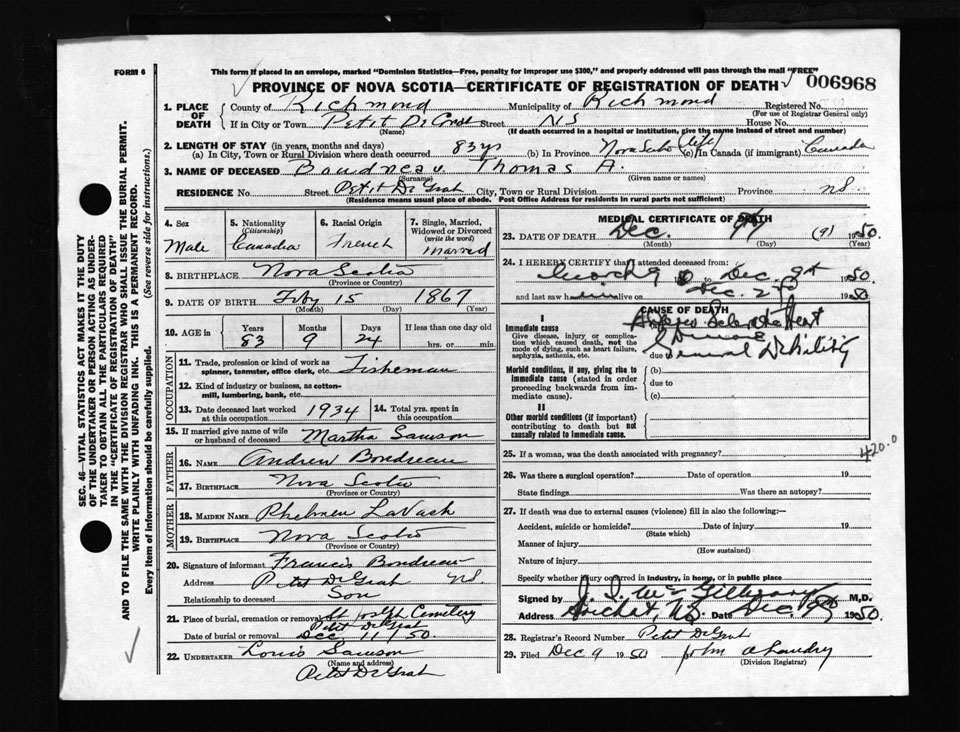 FORM 6
This form if placed in an envelope, marked "Dominion Statistics—Free, penalty for improper use $300," and properly addressed will pass through the mail "FREE"
PROVINCE OF NOVA SCOTIA—CERTIFICATE OF REGISTRATION OF DEATH
006968
1. PLACE OF DEATH
County of Richmond Municipality of Richmond Registered No.
(For use of Registrar General only)
If in City or Town Petit De Street NS House No.
(Name) (If death occurred in a hospital or institution, give the name instead of street and number)
2. LENGTH OF STAY (in years, months and days)
(a) In City, Town or Rural Division where death occurred 83 yrs (b) In Province Nova Scotia (life) (c) In Canada (if immigrant) Canada
3. NAME OF DECEASED Boudneau Thomas A.
(Surname) (Given name or names)
RESIDENCE No. Street Petit De Grat City, Town or Rural Division Province NS.
(Residence means usual place of abode. Post Office Address for residents in rural parts not sufficient)
4. Sex
Male
5. Nationality
(Citizenship)
Canadia
6. Racial Origin
French
7. Single, Married, Widowed or Divorced
(write the word)
Married
8. BIRTHPLACE Nova Scotia
(Province or Country)
9. DATE OF BIRTH Feby 15 1867
(Month) (Day) (Year)
10. AGE in Years Months Days If less than one day old
83 9 24 hrs. or min.
OCCUPATION
11. Trade, profession or kind of work as spinner, teamster, office clerk, etc. Fisheman
12. Kind of industry or business, as cotton-mill, lumbering, bank, etc.
13. Date deceased last worked at this occupation 1934
14. Total yrs. spent in this occupation
15. If married give name of wife or husband of deceased Martha Samson
FATHER
16. NAME Andrew Boudreau
17. BIRTHPLACE Nova Scotia
(Province or Country)
MOTHER
18. MAIDEN NAME LaVach
19. BIRTHPLACE Nova Scotia
(Province or Country)
20. Signature of informant Francis Boudreau
Address Petit De Grat NS.
Relationship to deceased Son
21. Place of burial, cremation or removal St Joseph Cemetery
Petit De Grat
Date of burial or removal Dec 11/50.
22. UNDERTAKER Louis Samson
(Name and address)
Petit De Grat
MEDICAL CERTIFICATE OF DEATH
23. DATE OF DEATH Dec. 9th (9) 1950.
(Month) (Day) (Year)
24. I HEREBY CERTIFY that I attended deceased from:
to Dec. 9th 1950
and last saw him alive on Dec. 2 1950
CAUSE OF DEATH
I
Immediate cause
Give disease, injury or complication which caused death, not the mode of dying, such as heart failure, asphyxia, asthenia, etc.
(a) Heart
Disease
due to General Debility
Morbid conditions, if any, giving rise to immediate cause (stated in order proceeding backwards from immediate cause).
(b)
due to
(c)
II
Other morbid conditions (if important) contributing to death but not causally related to immediate cause.
420.0
25. If a woman, was the death associated with pregnancy?
26. Was there a surgical operation? Date of operation 19
State findings Was there an autopsy?
27. If death was due to external causes (violence) fill in also the following:—
Accident, suicide or homicide? Date of injury 19
(State which)
Manner of injury
(How sustained)
Nature of injury
Specify whether injury occurred in industry, in home, or in public place
Signed by J. S. McGillivray M.D.
Address Arichat, N.S. Date Dec. 9th 1950
28. Registrar's Record Number Petit De Grat
29. Filed Dec 9 1950 John A Landry
(Division Registrar)
SEC. 46—VITAL STATISTICS ACT MAKES IT THE DUTY
OF THE UNDERTAKER OR PERSON ACTING AS UNDER-
TAKER TO OBTAIN ALL THE PARTICULARS REQUIRED
IN THE "CERTIFICATE OF REGISTRATION OF DEATH"
AND TO FILE THE SAME WITH THE DIVISION REGISTRAR WHO SHALL ISSUE THE BURIAL PERMIT.
WRITE PLAINLY WITH UNFADING INK. THIS IS A PERMANENT RECORD.
Every item of information should be carefully supplied. (See reverse side for instructions.)